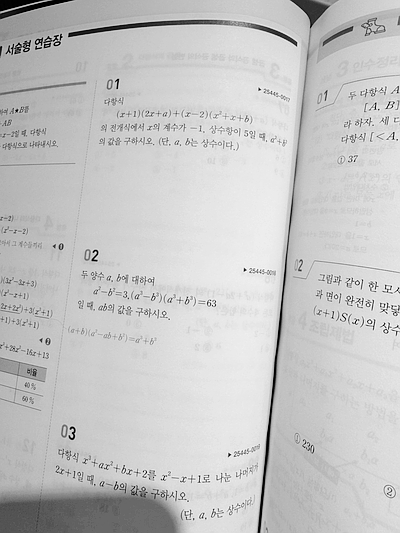 서술형 연습장
01
▶ 25445-0017
다항식
(x+1)(2x+a)+(x-2)(x²+x+b)
의 전개식에서 x의 계수가 -1, 상수항이 5일 때, a²+b²
의 값을 구하시오. (단, a, b는 상수이다.)
02
▶ 25445-0018
두 양수 a, b에 대하여
a²-b²=3, (a³-b³)(a³+b³)=63
일 때, ab의 값을 구하시오.
(a+b)(a²-ab+b²)=a³+b³
03
▶ 25445-0019
다항식 x³+ax²+bx+2를 x²-x+1로 나눈 나머지가
2x+1일 때, a-b의 값을 구하시오.
(단, a, b는 상수이다.)
A★B를
AB
x-2일 때, 다항식
다항식으로 나타내시오.
x+2)
(x²-x-2)
❶
)(3x²-3x+3)
(x²-x+1)
+1)+3(x²+1)
❷
x²+28x²-16x+13
비율
40 %
60 %
01
두 다항식 A
[A, B]
라 하자. 세 다
다항식 [<A,
① 37
02
그림과 같이 한 모서
과 면이 완전히 맞닿
(x+1)S(x)의 상수
① 230
②